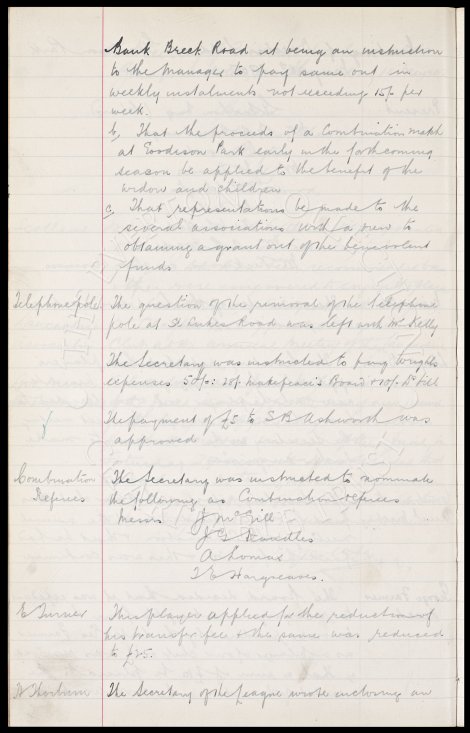 Bank Breck Road it being an instruction
to the Manager to pay same out in
weekly instalments not exceeding 15/- per
week.
b, That the proceeds of a Combination match
at Goodison Park early in the forthcoming
season be applied to the benefit of the
widow and children
c, That representations be made to the
several associations with a view to
obtaining a grant out of the benevolent
funds
Telephone pole. The question of the removal of the telephone
pole at St Lukes Road was left with Mr Kelly
The Secretary was instructed to pay Wrights
expenses 50/-: 20/- Makepeace's Board + 10/- Dr
The payment of £5 to S B Ashworth was
approved
Combination The Secretary was instructed to nominate
Referees the following as Combination referees
Messrs J McGill
J G
A Lomas
T E Hargreaves.
E Turner This player applied for the reduction of
his transfer fee & the same was reduced
to £25.
The Secretary of the League wrote enclosing an